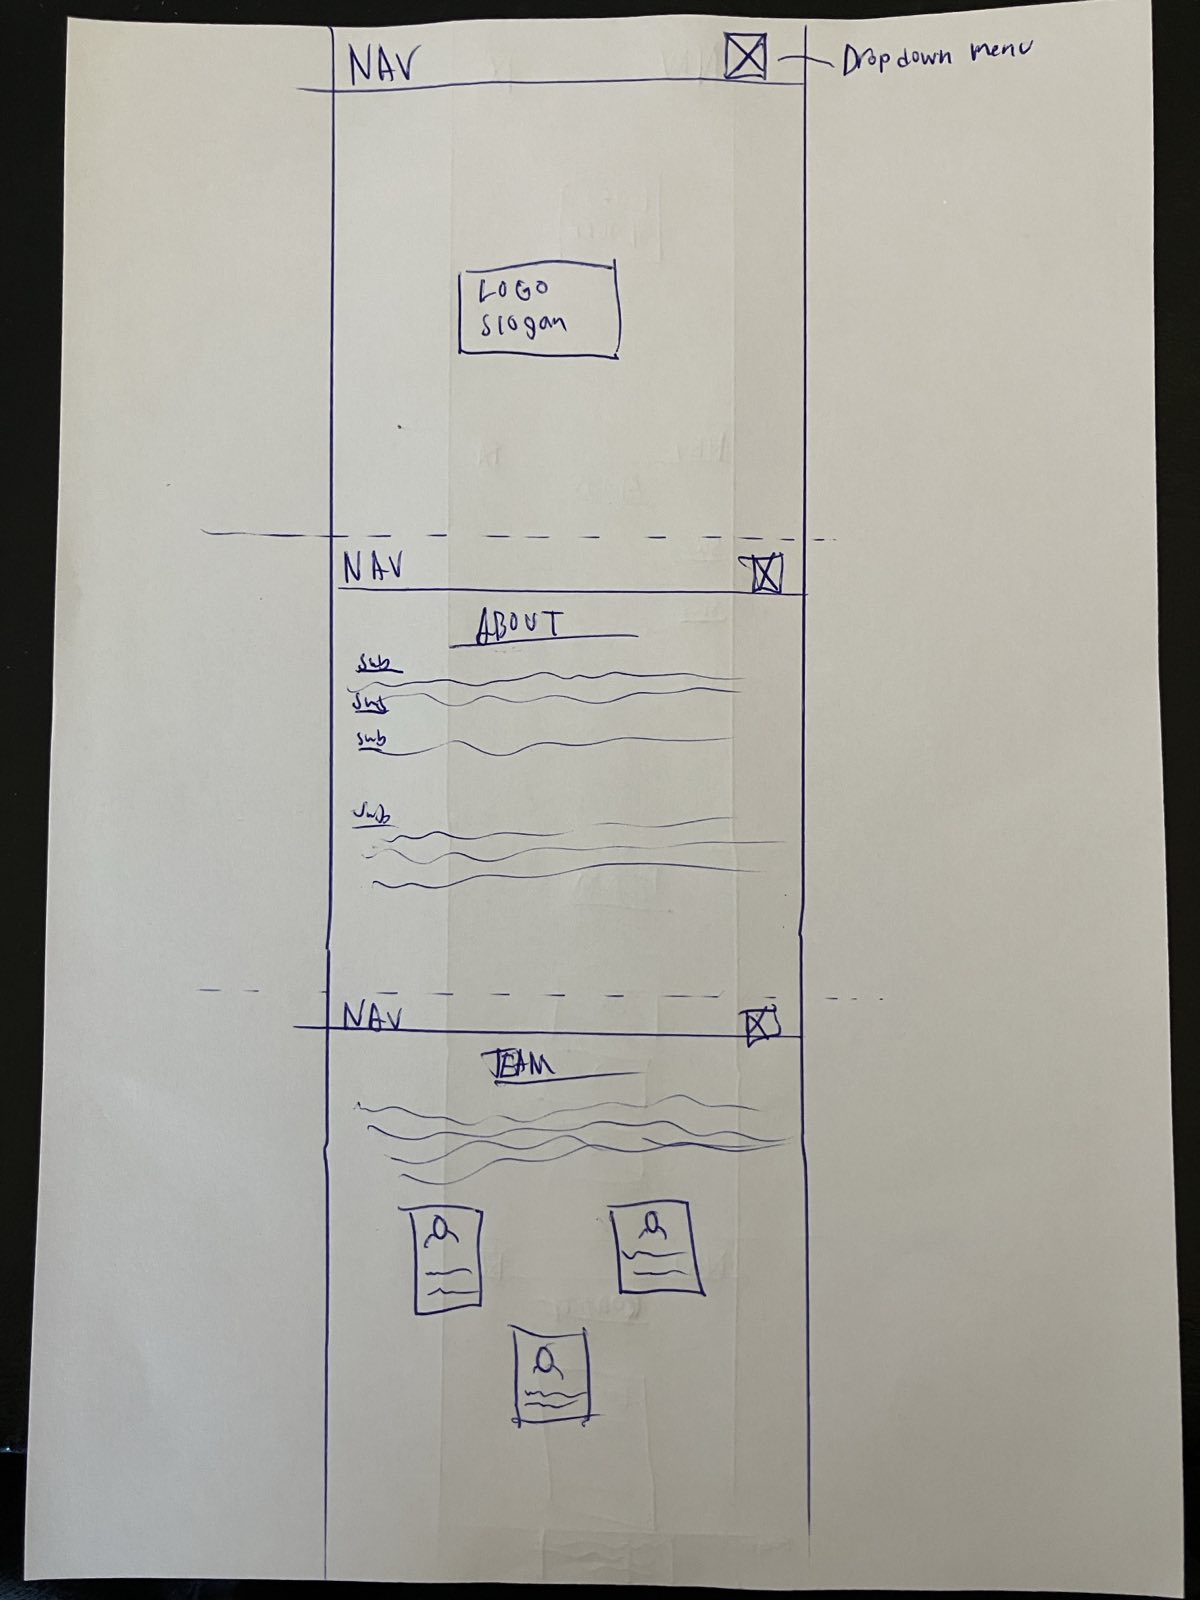 NAV
Dropdown menu
LOGO
Slogan
NAV
ABOUT
Sub
Sub
Sub
Sub
NAV
TEAM